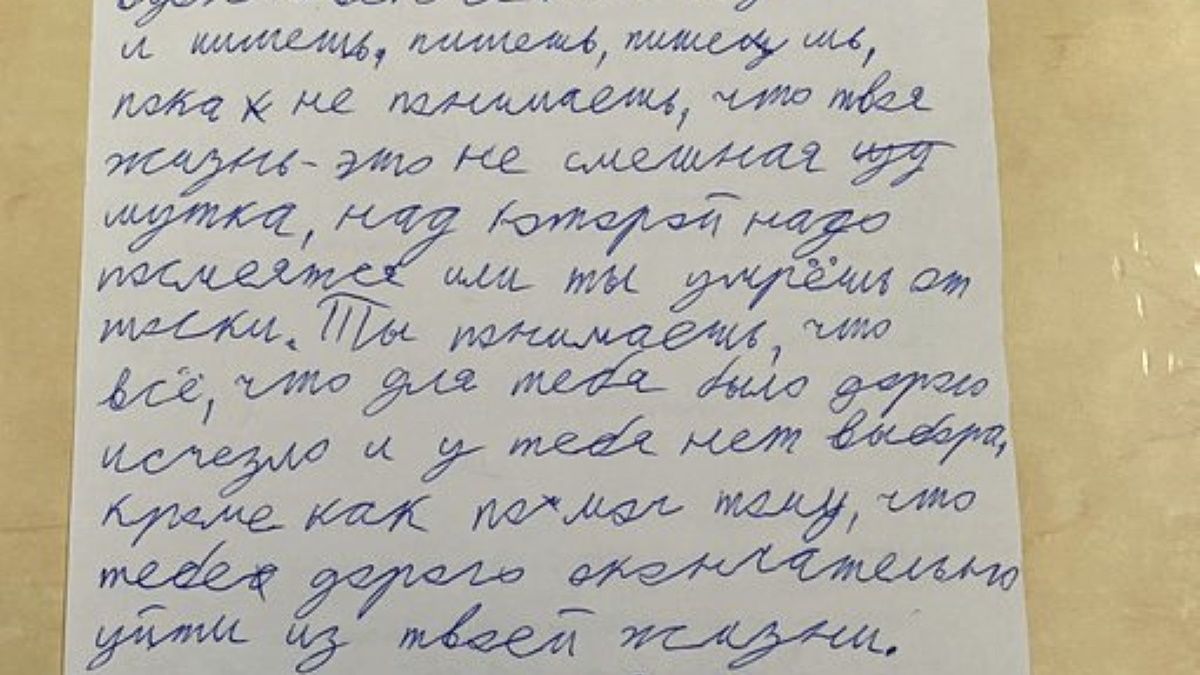 и пишешь, пишешь, пишешь,
пока не понимаешь, что твоя
жизнь - это не смешная
шутка, над которой надо
посмеятся или ты умрёшь от
тоски. Ты понимаешь, что
всё, что для тебя было дорого
исчезло и у тебя нет выбора,
кроме как помоч тому, что
тебе дорого окончательно
уйти из твоей жизни.